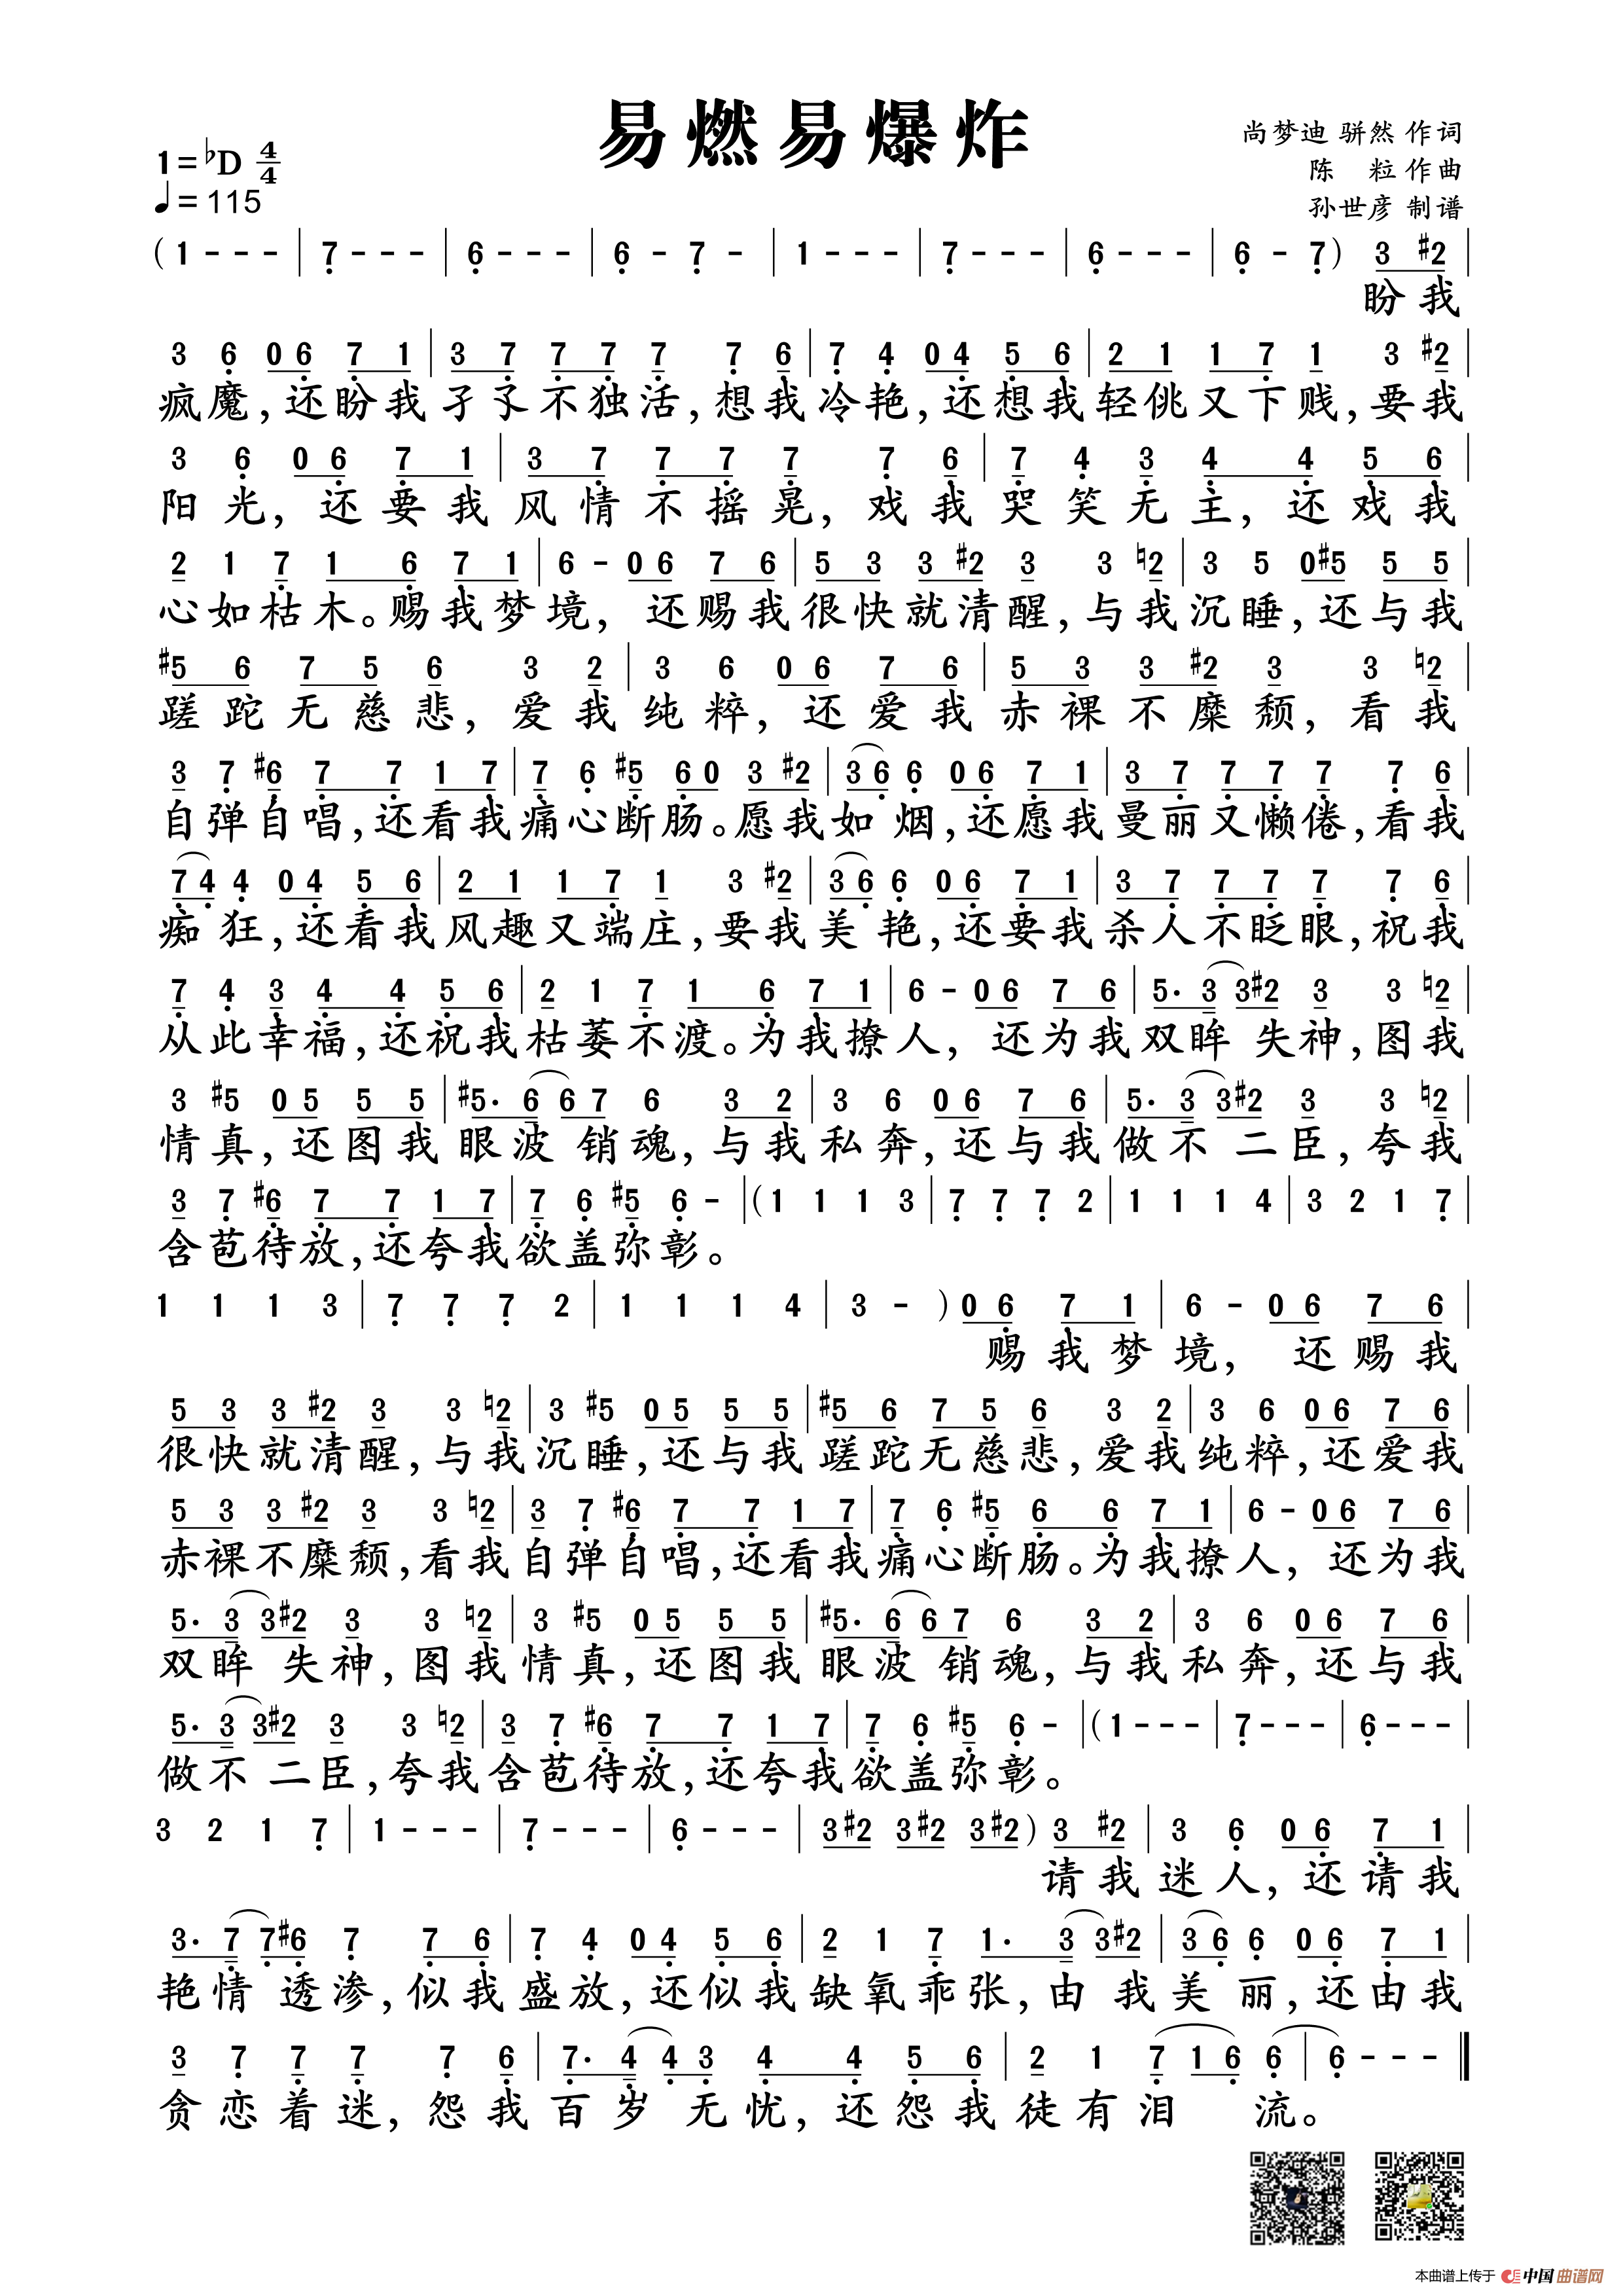 易燃易爆炸
1=♭D 4/4
♩= 115
尚梦迪 骈然 作词
陈 粒 作曲
孙世彦 制谱
( 1 - - - | 7 - - - | 6 - - - | 6 - 7 - | 1 - - - | 7 - - - | 6 - - - | 6 - 7 ) 3 #2 |
盼我
3 6 0 6 7 1 | 3 7 7 7 7 7 6 | 7 4 0 4 5 6 | 2 1 1 7 1 3 #2 |
疯魔,还盼我孑孓不独活,想我冷艳,还想我轻佻又下贱,要我
3 6 0 6 7 1 | 3 7 7 7 7 7 6 | 7 4 3 4 4 5 6 |
阳光,还要我风情不摇晃,戏我哭笑无主,还戏我
2 1 7 1 6 7 1 | 6 - 0 6 7 6 | 5 3 3 #2 3 3 ♮2 | 3 5 0 #5 5 5 |
心如枯木。赐我梦境,还赐我很快就清醒,与我沉睡,还与我
#5 6 7 5 6 3 2 | 3 6 0 6 7 6 | 5 3 3 #2 3 3 ♮2 |
蹉跎无慈悲,爱我纯粹,还爱我赤裸不糜颓,看我
3 7 #6 7 7 1 7 | 7 6 #5 6 0 3 #2 | 3 6 6 0 6 7 1 | 3 7 7 7 7 7 6 |
自弹自唱,还看我痛心断肠。愿我如烟,还愿我曼丽又懒倦,看我
7 4 4 0 4 5 6 | 2 1 1 7 1 3 #2 | 3 6 6 0 6 7 1 | 3 7 7 7 7 7 6 |
痴狂,还看我风趣又端庄,要我美艳,还要我杀人不眨眼,祝我
7 4 3 4 4 5 6 | 2 1 7 1 6 7 1 | 6 - 0 6 7 6 | 5. 3 3 #2 3 3 ♮2 |
从此幸福,还祝我枯萎不渡。为我撩人,还为我双眸失神,图我
3 #5 0 5 5 5 | #5. 6 6 7 6 3 2 | 3 6 0 6 7 6 | 5. 3 3 #2 3 3 ♮2 |
情真,还图我眼波销魂,与我私奔,还与我做不二臣,夸我
3 7 #6 7 7 1 7 | 7 6 #5 6 - | ( 1 1 1 3 | 7 7 7 2 | 1 1 1 4 | 3 2 1 7 |
含苞待放,还夸我欲盖弥彰。
1 1 1 3 | 7 7 7 2 | 1 1 1 4 | 3 - ) 0 6 7 1 | 6 - 0 6 7 6 |
赐我梦境,还赐我
5 3 3 #2 3 3 ♮2 | 3 #5 0 5 5 5 | #5 6 7 5 6 3 2 | 3 6 0 6 7 6 |
很快就清醒,与我沉睡,还与我蹉跎无慈悲,爱我纯粹,还爱我
5 3 3 #2 3 3 ♮2 | 3 7 #6 7 7 1 7 | 7 6 #5 6 6 7 1 | 6 - 0 6 7 6 |
赤裸不糜颓,看我自弹自唱,还看我痛心断肠。为我撩人,还为我
5. 3 3 #2 3 3 ♮2 | 3 #5 0 5 5 5 | #5. 6 6 7 6 3 2 | 3 6 0 6 7 6 |
双眸失神,图我情真,还图我眼波销魂,与我私奔,还与我
5. 3 3 #2 3 3 ♮2 | 3 7 #6 7 7 1 7 | 7 6 #5 6 - | ( 1 - - - | 7 - - - | 6 - - - |
做不二臣,夸我含苞待放,还夸我欲盖弥彰。
3 2 1 7 | 1 - - - | 7 - - - | 6 - - - | 3 #2 3 #2 3 #2 ) 3 #2 | 3 6 0 6 7 1 |
请我迷人,还请我
3. 7 7 #6 7 7 6 | 7 4 0 4 5 6 | 2 1 7 1. 3 3 #2 | 3 6 6 0 6 7 1 |
艳情透渗,似我盛放,还似我缺氧乖张,由我美丽,还由我
3 7 7 7 7 6 | 7. 4 4 3 4 4 5 6 | 2 1 7 1 6 6 | 6 - - - ‖
贪恋着迷,怨我百岁无忧,还怨我徒有泪流。
本曲谱上传于 中国曲谱网